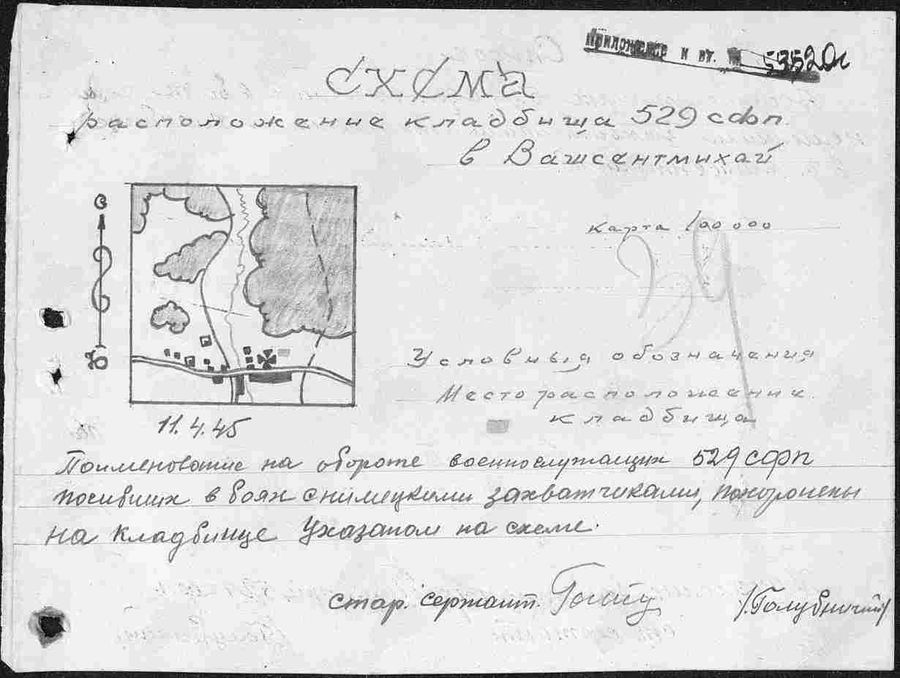 Приложение к вх. № 53520с
Схема
расположение кладбища 529 сфп.
в Вашсентмихай
С
карта 100 000
Ю
Условныя обозначения
Месторасположение
кладбища
11.4.45
Поименование на обороте военнослужащих 529 сфп
погибших в боях с немецкими захватчиками, похоронены
на кладбище указаном на схеме.
стар. сержант. /Голубничий/